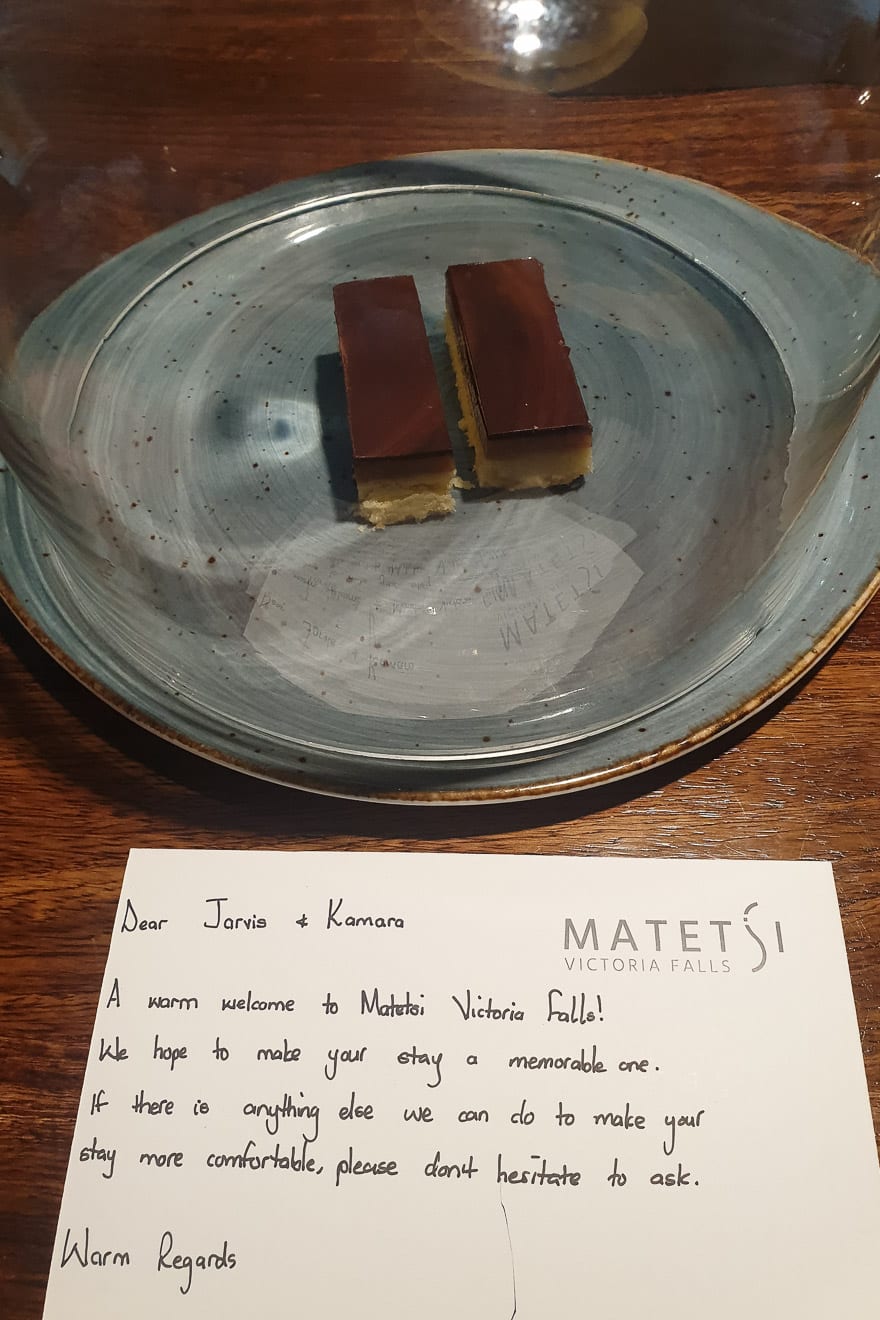 Dear Jarvis & Kamara
MATETSI
VICTORIA FALLS
A warm welcome to Matetsi Victoria Falls!
We hope to make your stay a memorable one.
If there is anything else we can do to make your
stay more comfortable, please don't hesitate to ask.
Warm Regards